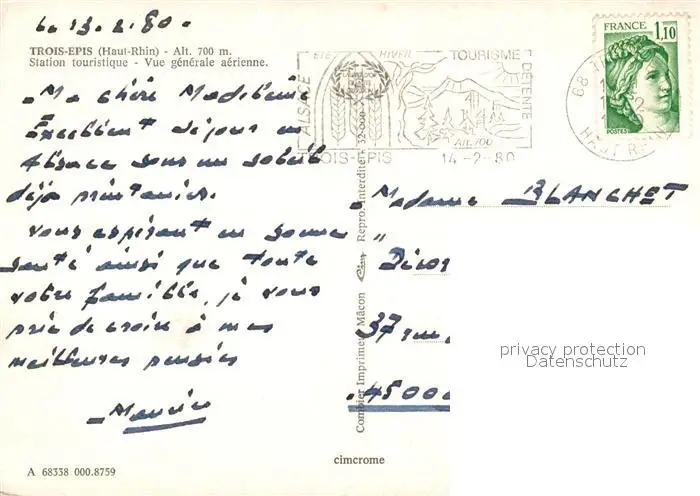 Le 13.2.80.
TROIS-EPIS (Haut-Rhin) - Alt. 700 m.
Station touristique - Vue générale aérienne.
Ma chère Madeleine
Excellent séjour en
Alsace sous un soleil
déjà printanier.
Vous espérant en bonne
santé ainsi que toute
votre famille, je vous
prie de croire à mes
meilleures pensées
Maurice
A 68338 000.8759
ÉTÉ HIVER TOURISME
ALSACE
DETENTE
Alt. 700
TROIS-EPIS 14-2-80
68
HAUT RHIN
FRANCE 1,10
POSTES
Combier Imprimeur Mâcon Repro. Interdite
cimcrome
Madame BLANCHET
"
37 rue
45000
privacy protection
Datenschutz